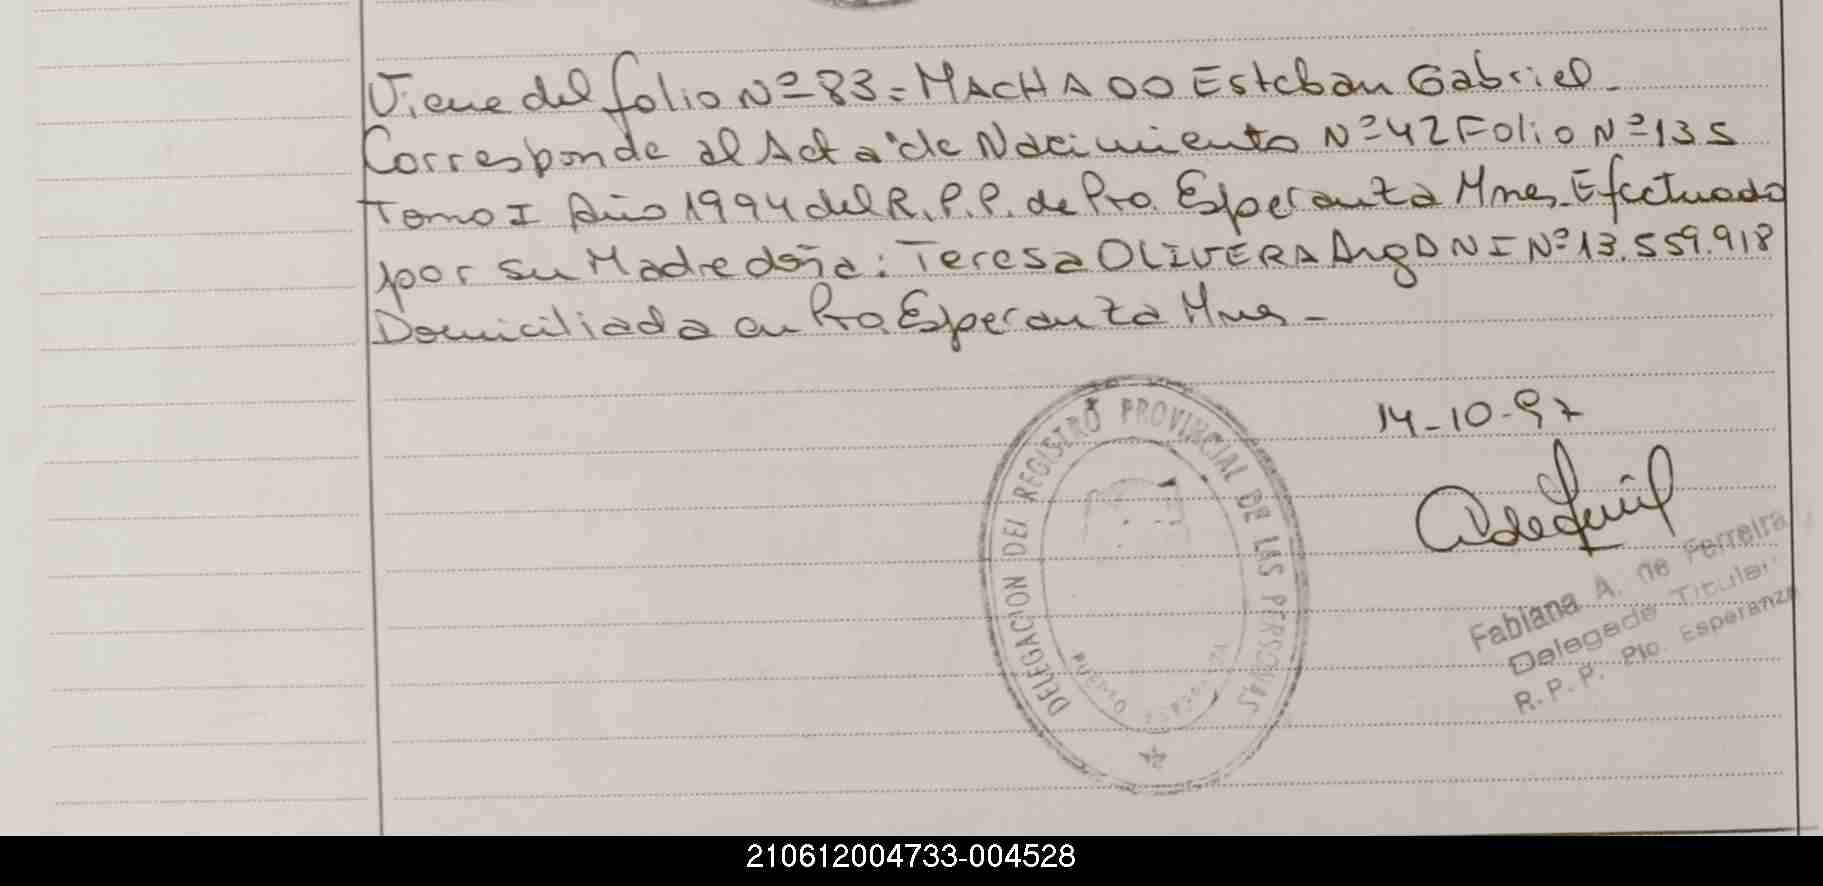 Viene del folio Nº 83 = MACHADO Esteban Gabriel -
Corresponde al Acta de Nacimiento Nº 42 Folio Nº 135
Tomo I Año 1994 del R.P.P. de Pto. Esperanza Mnes. Efectuado
por su Madre doña: Teresa OLIVERA Arg DNI Nº 13.559.918
Domiciliada en Pto. Esperanza Mnes -
14-10-97
DELEGACION DEL REGISTRO PROVINCIAL DE LAS PERSONAS
PUERTO ESPERANZA
Fabiana A. de Ferreira
Delegada Titular
R.P.P. Pto. Esperanza
210612004733-004528